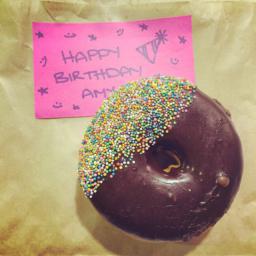 HAPPY
BIRTHDAY
AMY